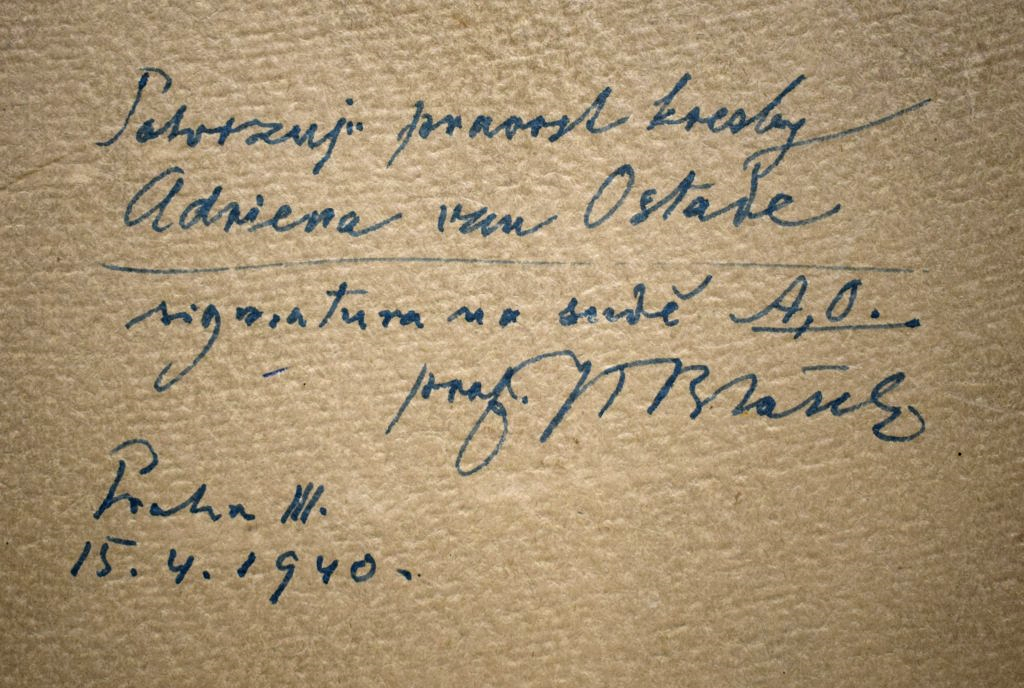 Potvrzuji pravost kresby
Adriena van Ostade
signatura na sudě A,O.
prof.
Praha III.
15. 4. 1940.